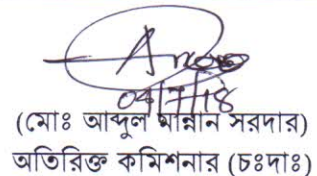 04/7/18
(মোঃ আব্দুল মান্নান সরদার)
অতিরিক্ত কমিশনার (চঃদাঃ)